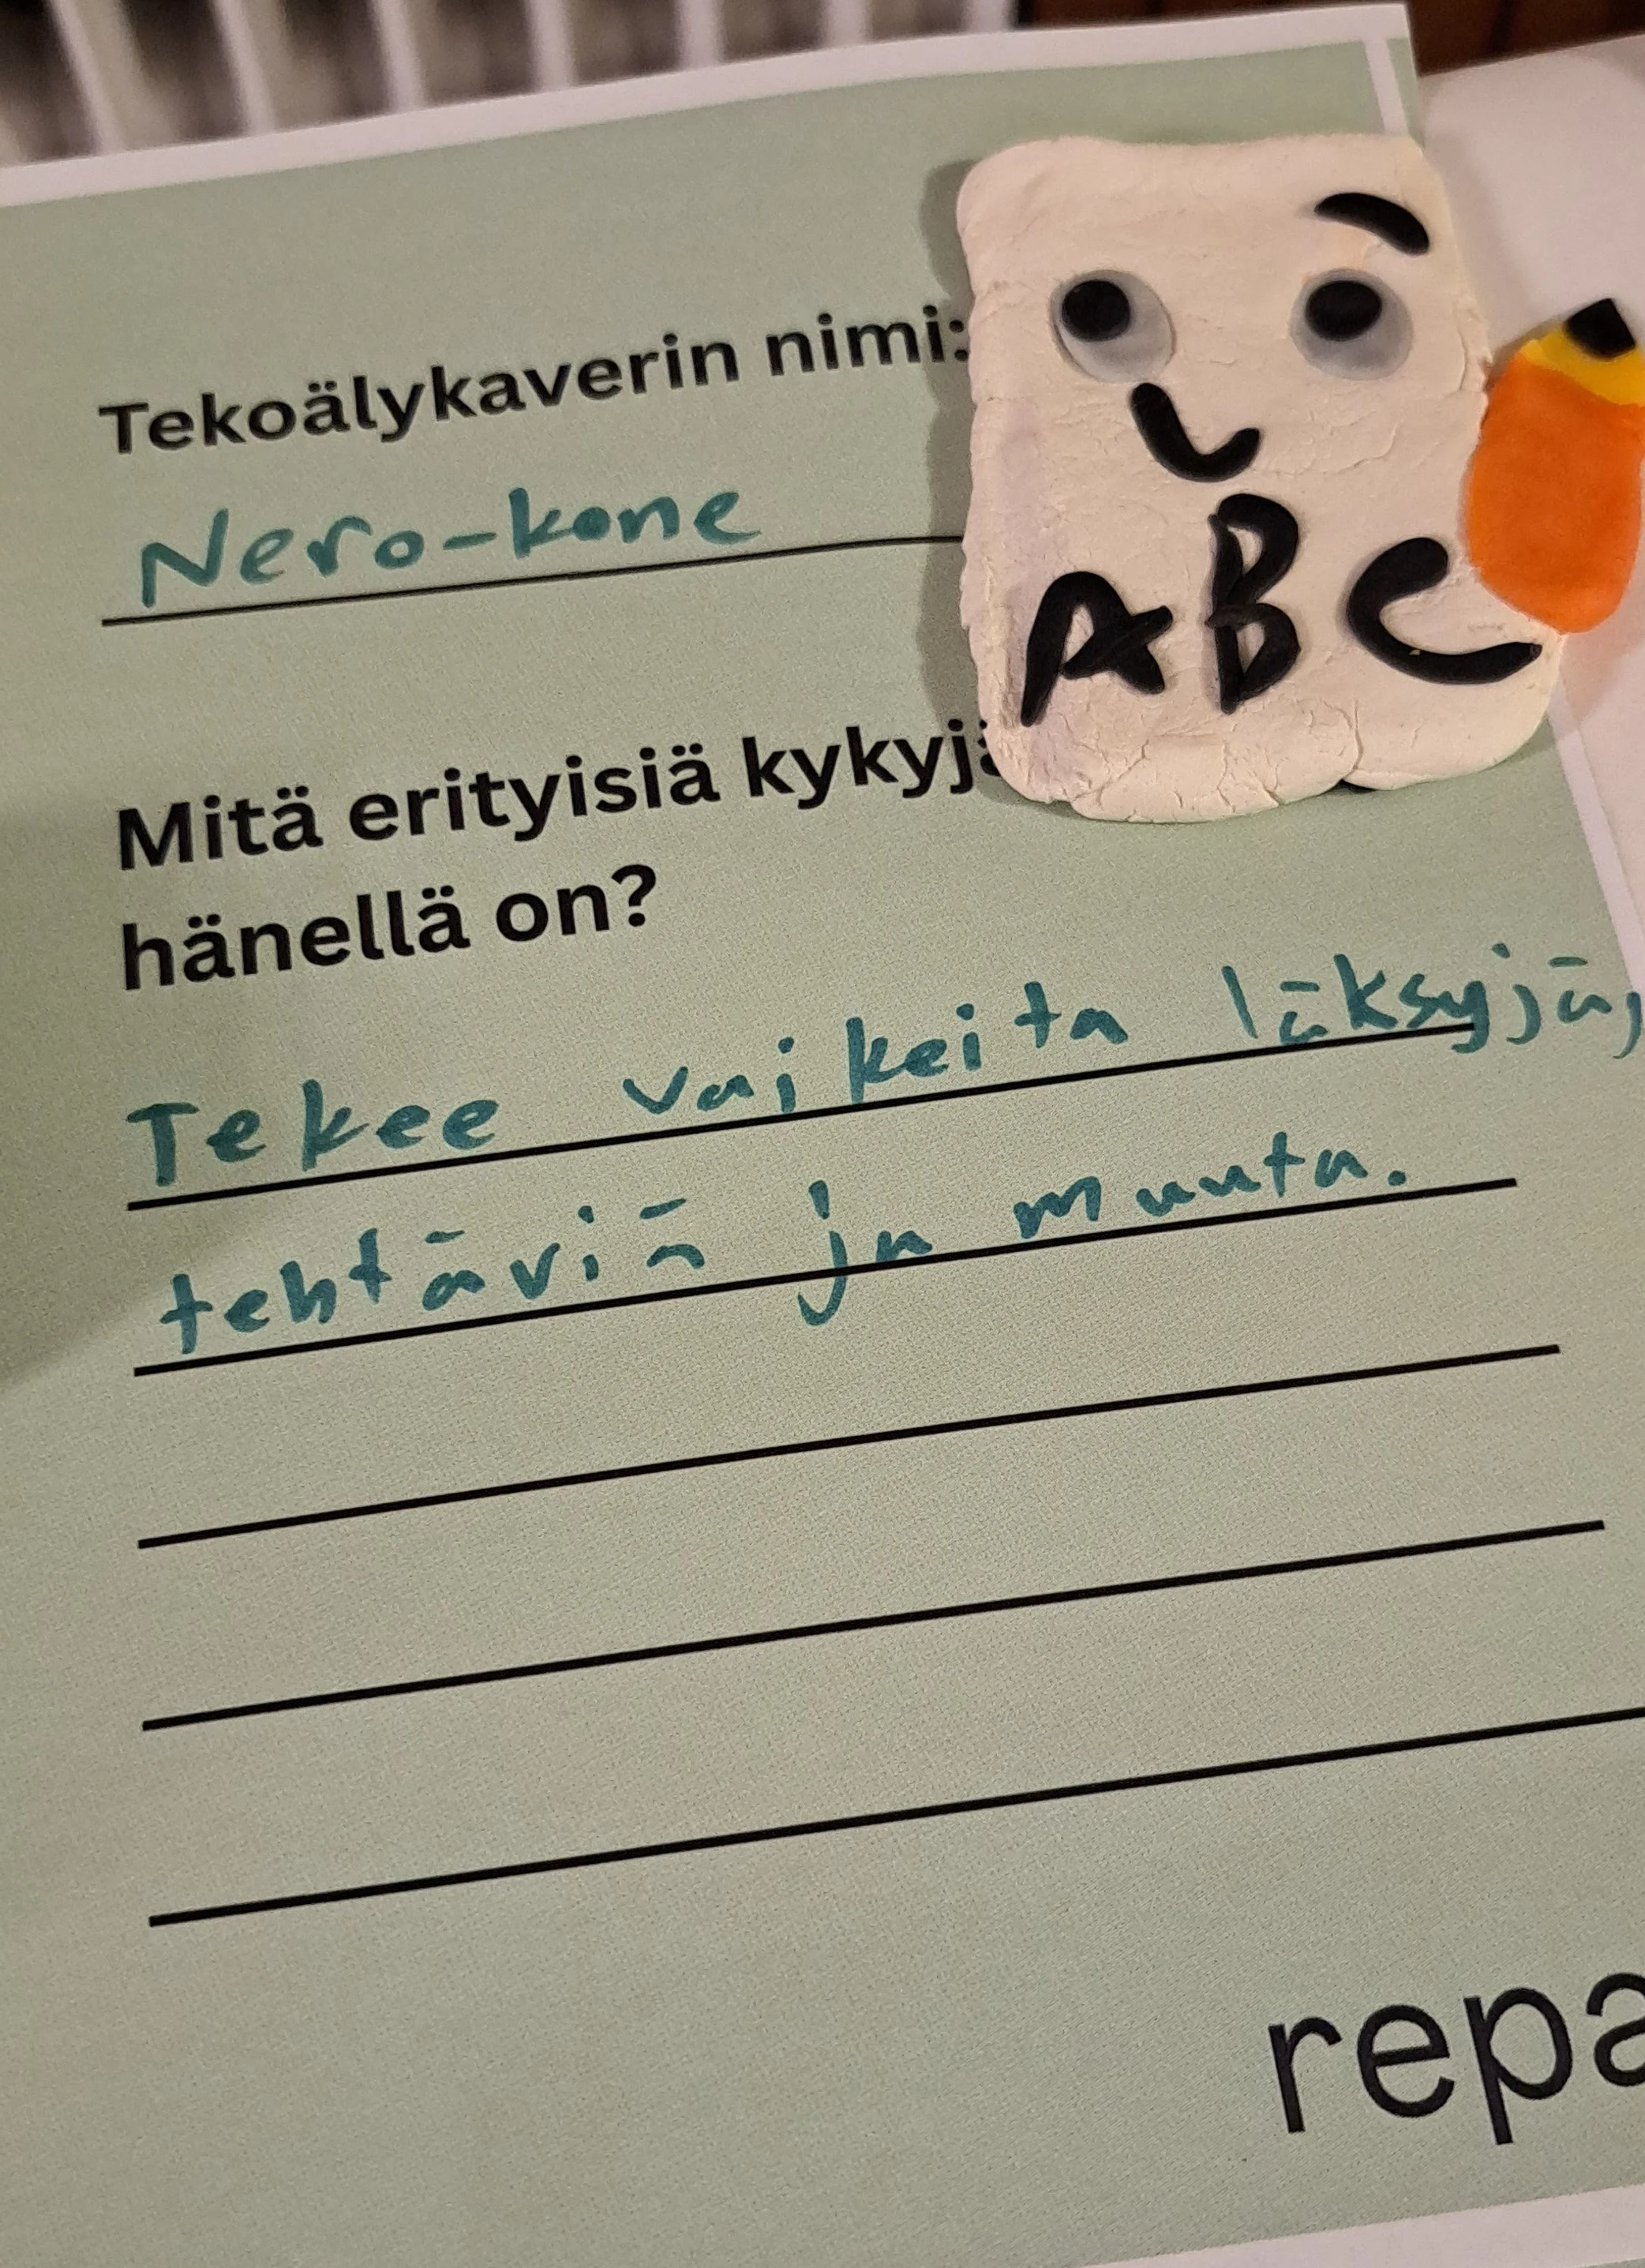 Tekoälykaverin nimi:
Nero-kone
ABC
Mitä erityisiä kykyjä
hänellä on?
Tekee vaikeita läksyjä,
tehtäviä ja muuta.
repa